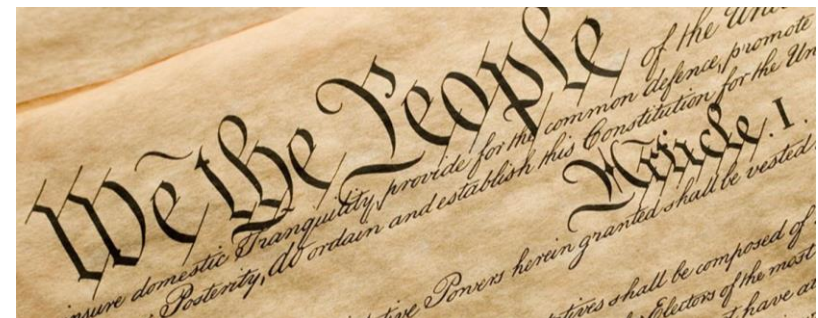 We the People of the Unit
insure domestic Tranquility, provide for the common defence, promote
Posterity, do ordain and establish this Constitution for the Un
Article. I.
Powers herein granted shall be vested
shall be composed of
Electors of the most
have